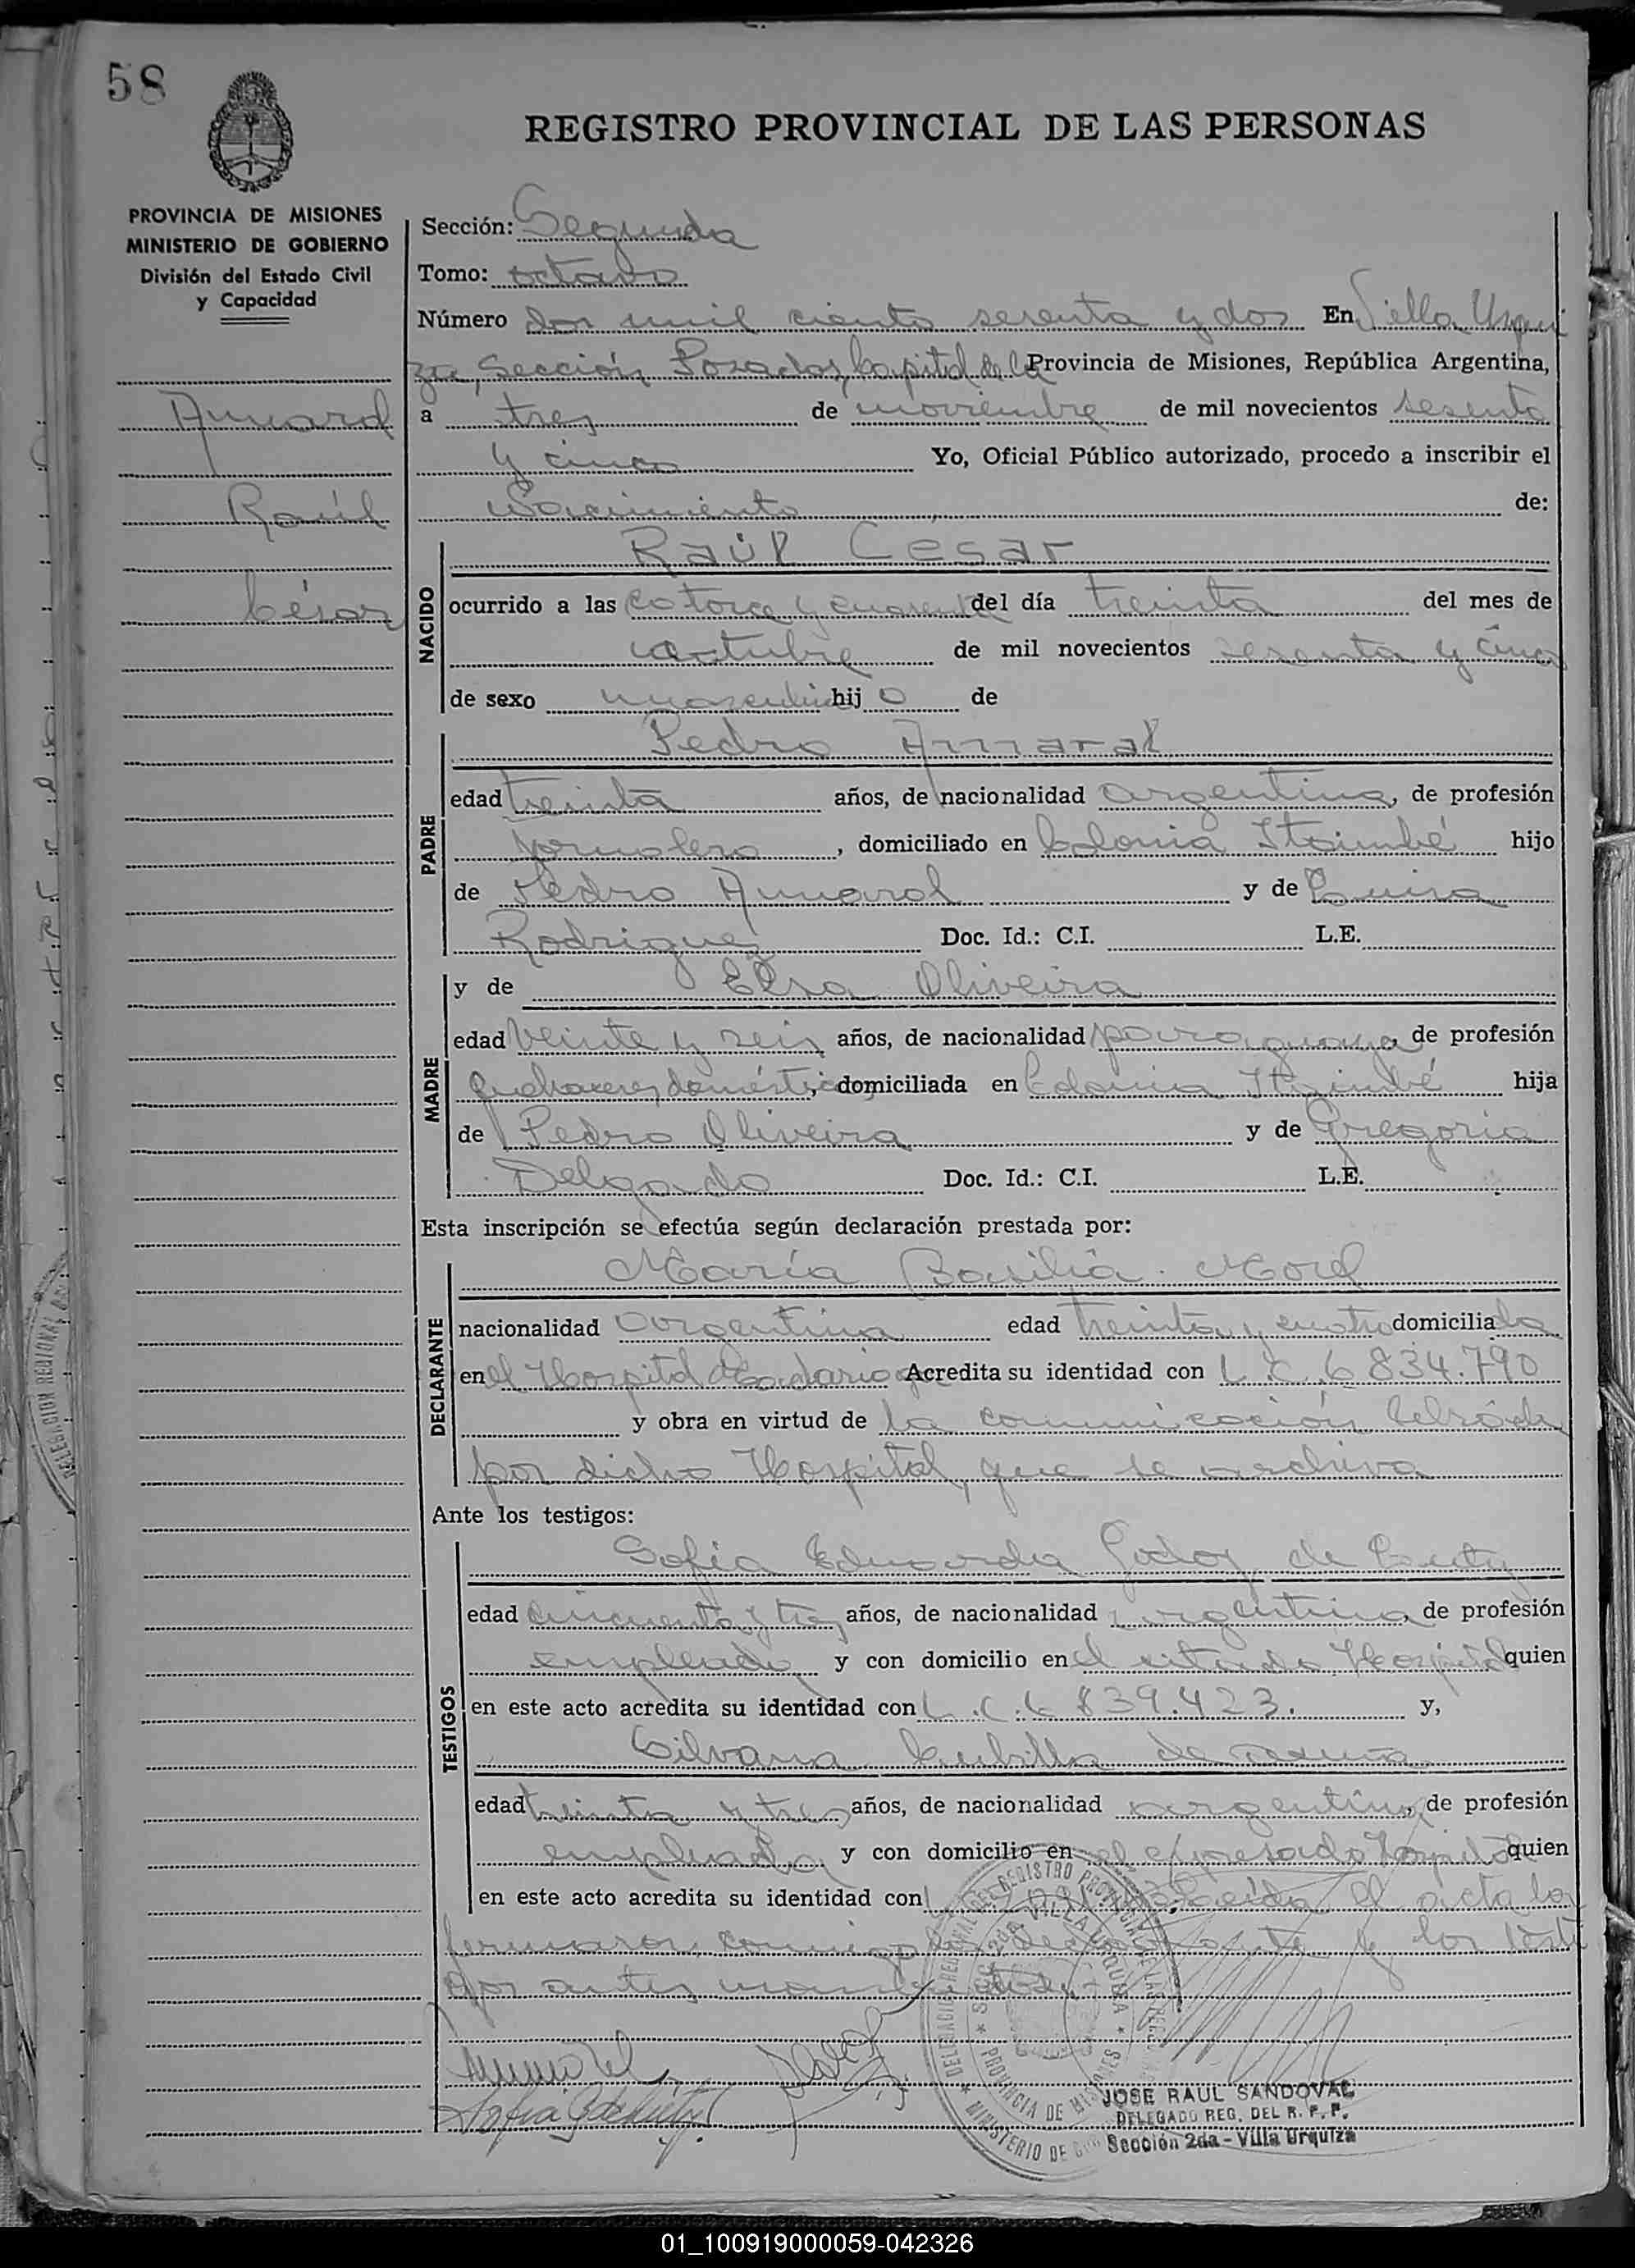 58
REGISTRO PROVINCIAL DE LAS PERSONAS
PROVINCIA DE MISIONES
MINISTERIO DE GOBIERNO
División del Estado Civil
y Capacidad
Ammaral
Raúl
César
Sección: Segunda
Tomo: octavo
Número dos mil ciento sesenta y dos En Villa Urqui
za, Sección Posadas, Capital de la Provincia de Misiones, República Argentina,
a tres de noviembre de mil novecientos sesenta
y cinco Yo, Oficial Público autorizado, procedo a inscribir el
Nacimiento de:
NACIDO
Raúl César
ocurrido a las catorce y cuarenta del día treinta del mes de
octubre de mil novecientos sesenta y cinco
de sexo masculino hijo de
PADRE
Pedro Ammaral
edad treinta años, de nacionalidad argentina, de profesión
jornalero, domiciliado en Colonia Itaimbé hijo
de Pedro Ammaral y de Luisa
Rodriguez Doc. Id.: C.I. L.E.
MADRE
y de Elsa Oliveira
edad veinte y seis años, de nacionalidad paraguaya, de profesión
quehaceres domésticos, domiciliada en Colonia Itaimbé hija
de Pedro Oliveira y de Gregoria
Delgado Doc. Id.: C.I. L.E.
Esta inscripción se efectúa según declaración prestada por:
DECLARANTE
María Basilia Morel
nacionalidad argentina edad treinta y cuatro domiciliada
en el Hospital Acredita su identidad con L.C. 6834.790
y obra en virtud de la comunicación librada
por dicho Hospital, que se archiva
Ante los testigos:
TESTIGOS
Sofia Eduarda Godoy de
edad cincuenta y tres años, de nacionalidad argentina, de profesión
empleada y con domicilio en el citado Hospital quien
en este acto acredita su identidad con L.C. 6839.423. y,
Silvana Cubilla de
edad treinta y tres años, de nacionalidad argentina, de profesión
empleada y con domicilio en el expresado Hospital quien
en este acto acredita su identidad con Leída el acta la
firmaron conmigo la declarante y los testi
gos antes mencionados
JOSE RAUL SANDOVAL
DELEGADO REG. DEL R. P. P.
Sección 2da - Villa Urquiza
01_100919000059-042326